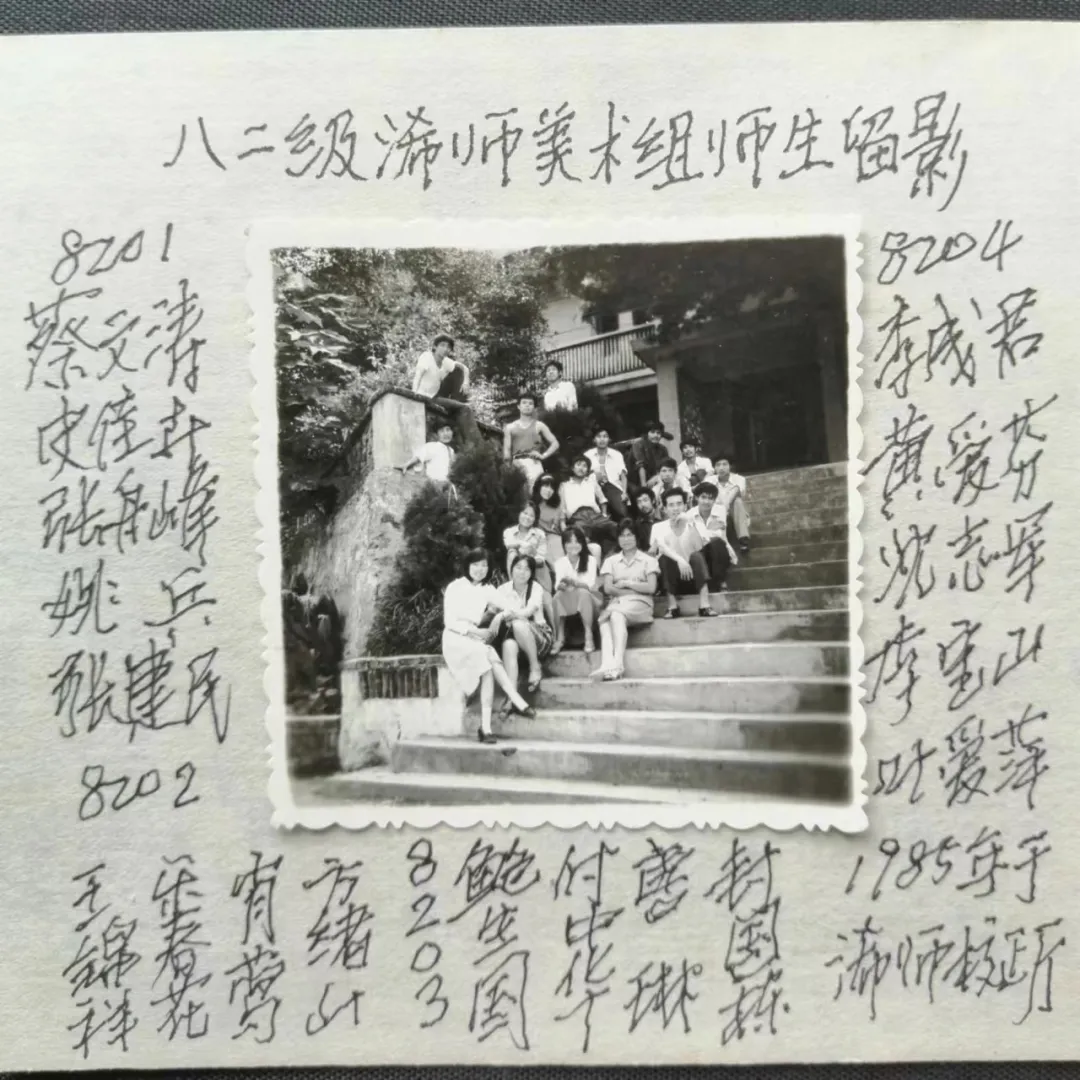 八二级浠师美术组师生留影
8201
蔡文涛
张舟峰
姚兵
张建民
8202
王锦祥
乐春花
肖莺
方绪山
8203
鲍生国
付中华
封国栋
8204
李成君
黄爱芬
沈志军
李宝山
叶爱萍
1985年于
浠师校所